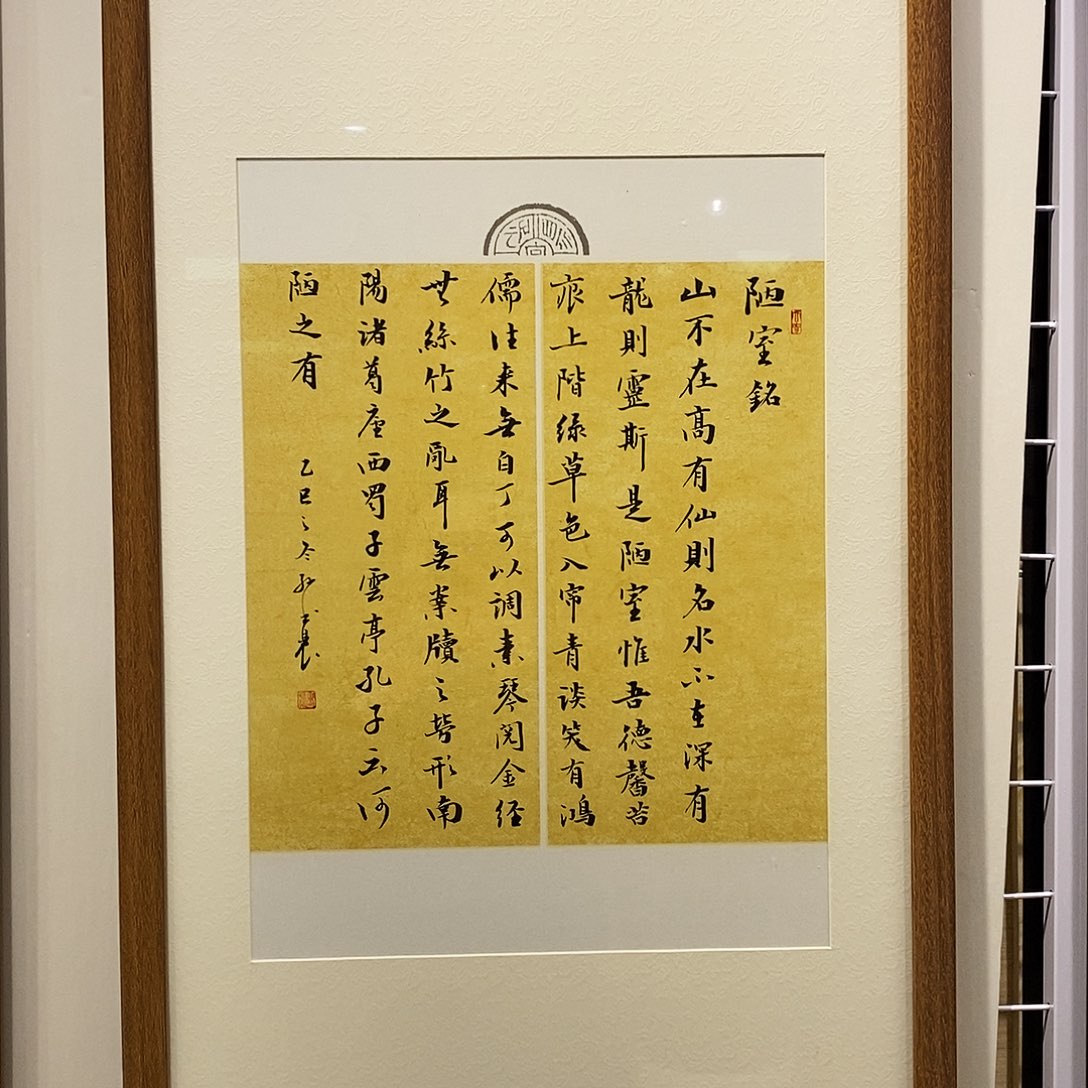 陋室銘
山不在髙有仙則名水不在深有
龍則靈斯是陋室惟吾德馨苔
痕上階緑草色入帘青談笑有鴻
儒往来無白丁可以調素琴閱金经
無絲竹之亂耳無案牘之勞形南
陽諸葛庐西蜀子雲亭孔子云何
陋之有
乙巳之冬